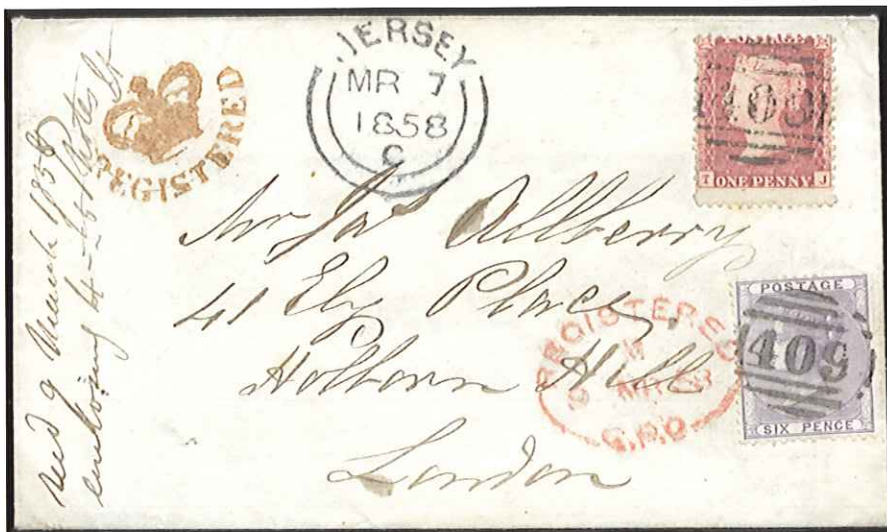 recd 9 March 1858
enclosing 4 - Notes
REGISTERED
JERSEY
MR 7
1858
C
409
T ONE PENNY J
Mr Jas Allberry
41 Ely Place
Holborn Hill
London
REGISTERED
MR
G.P.O
POSTAGE
409
SIX PENCE